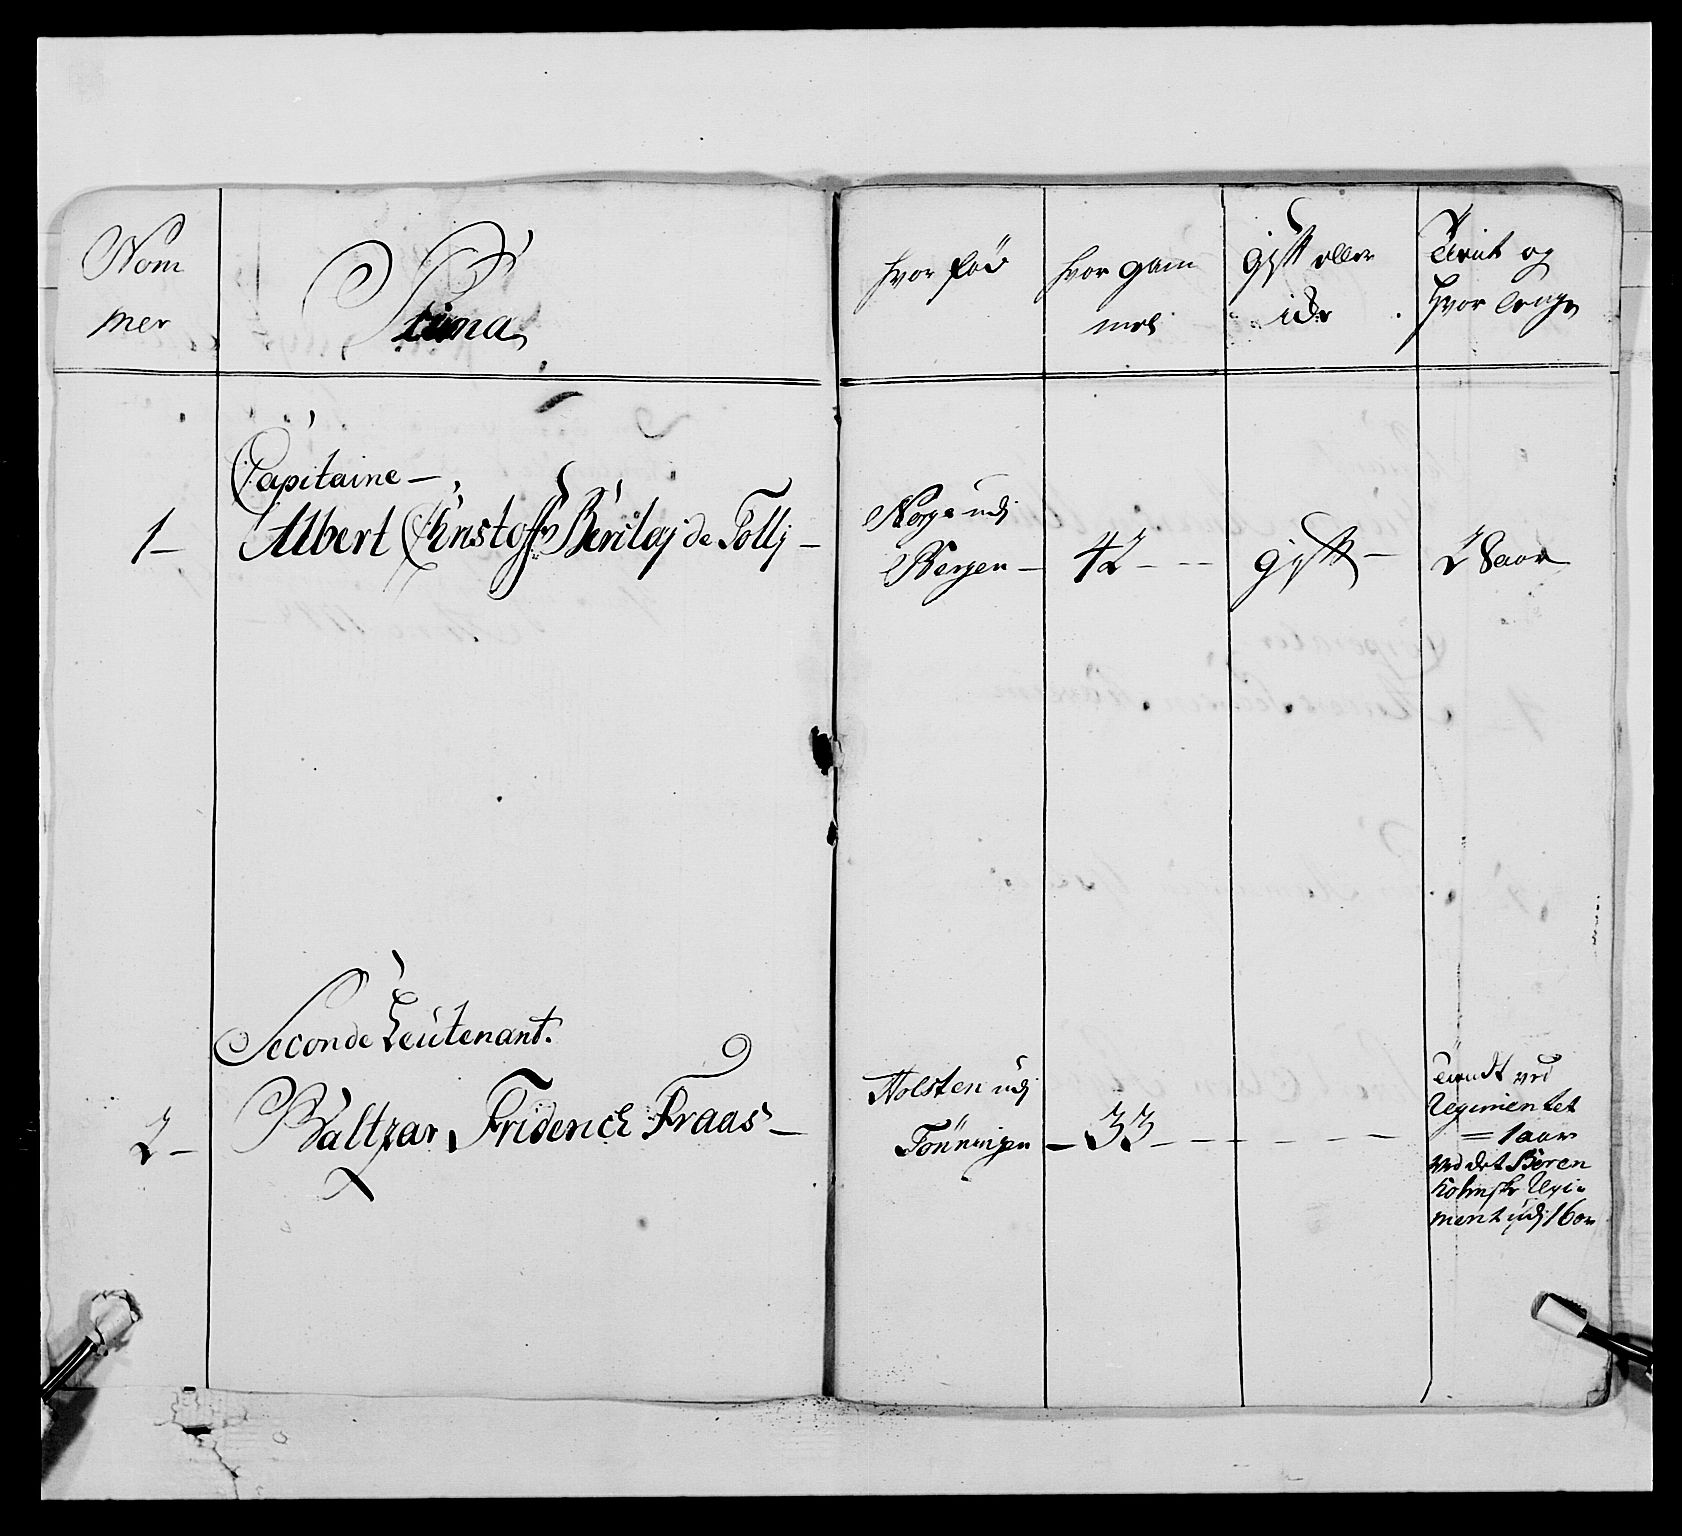 Nom
mer
Prima
hvor fød
hvor gam
mel
gift eller
icke
Tient og
hvor lenge
Capitaine -
1 - Albert Christoff Barclaj de Tollj -
Norge udj
Bergen -
42 - - -
gift -
28 aar
Seconde Leutenant.
2 - Baltzar Friderich Fraas -
Holsten udj
Tönningen -
33 - - - - - - -
Tiendt ved
Regimentet
= 1 aar
ved det Boren
holmske Regi-
ment udj 16 aar